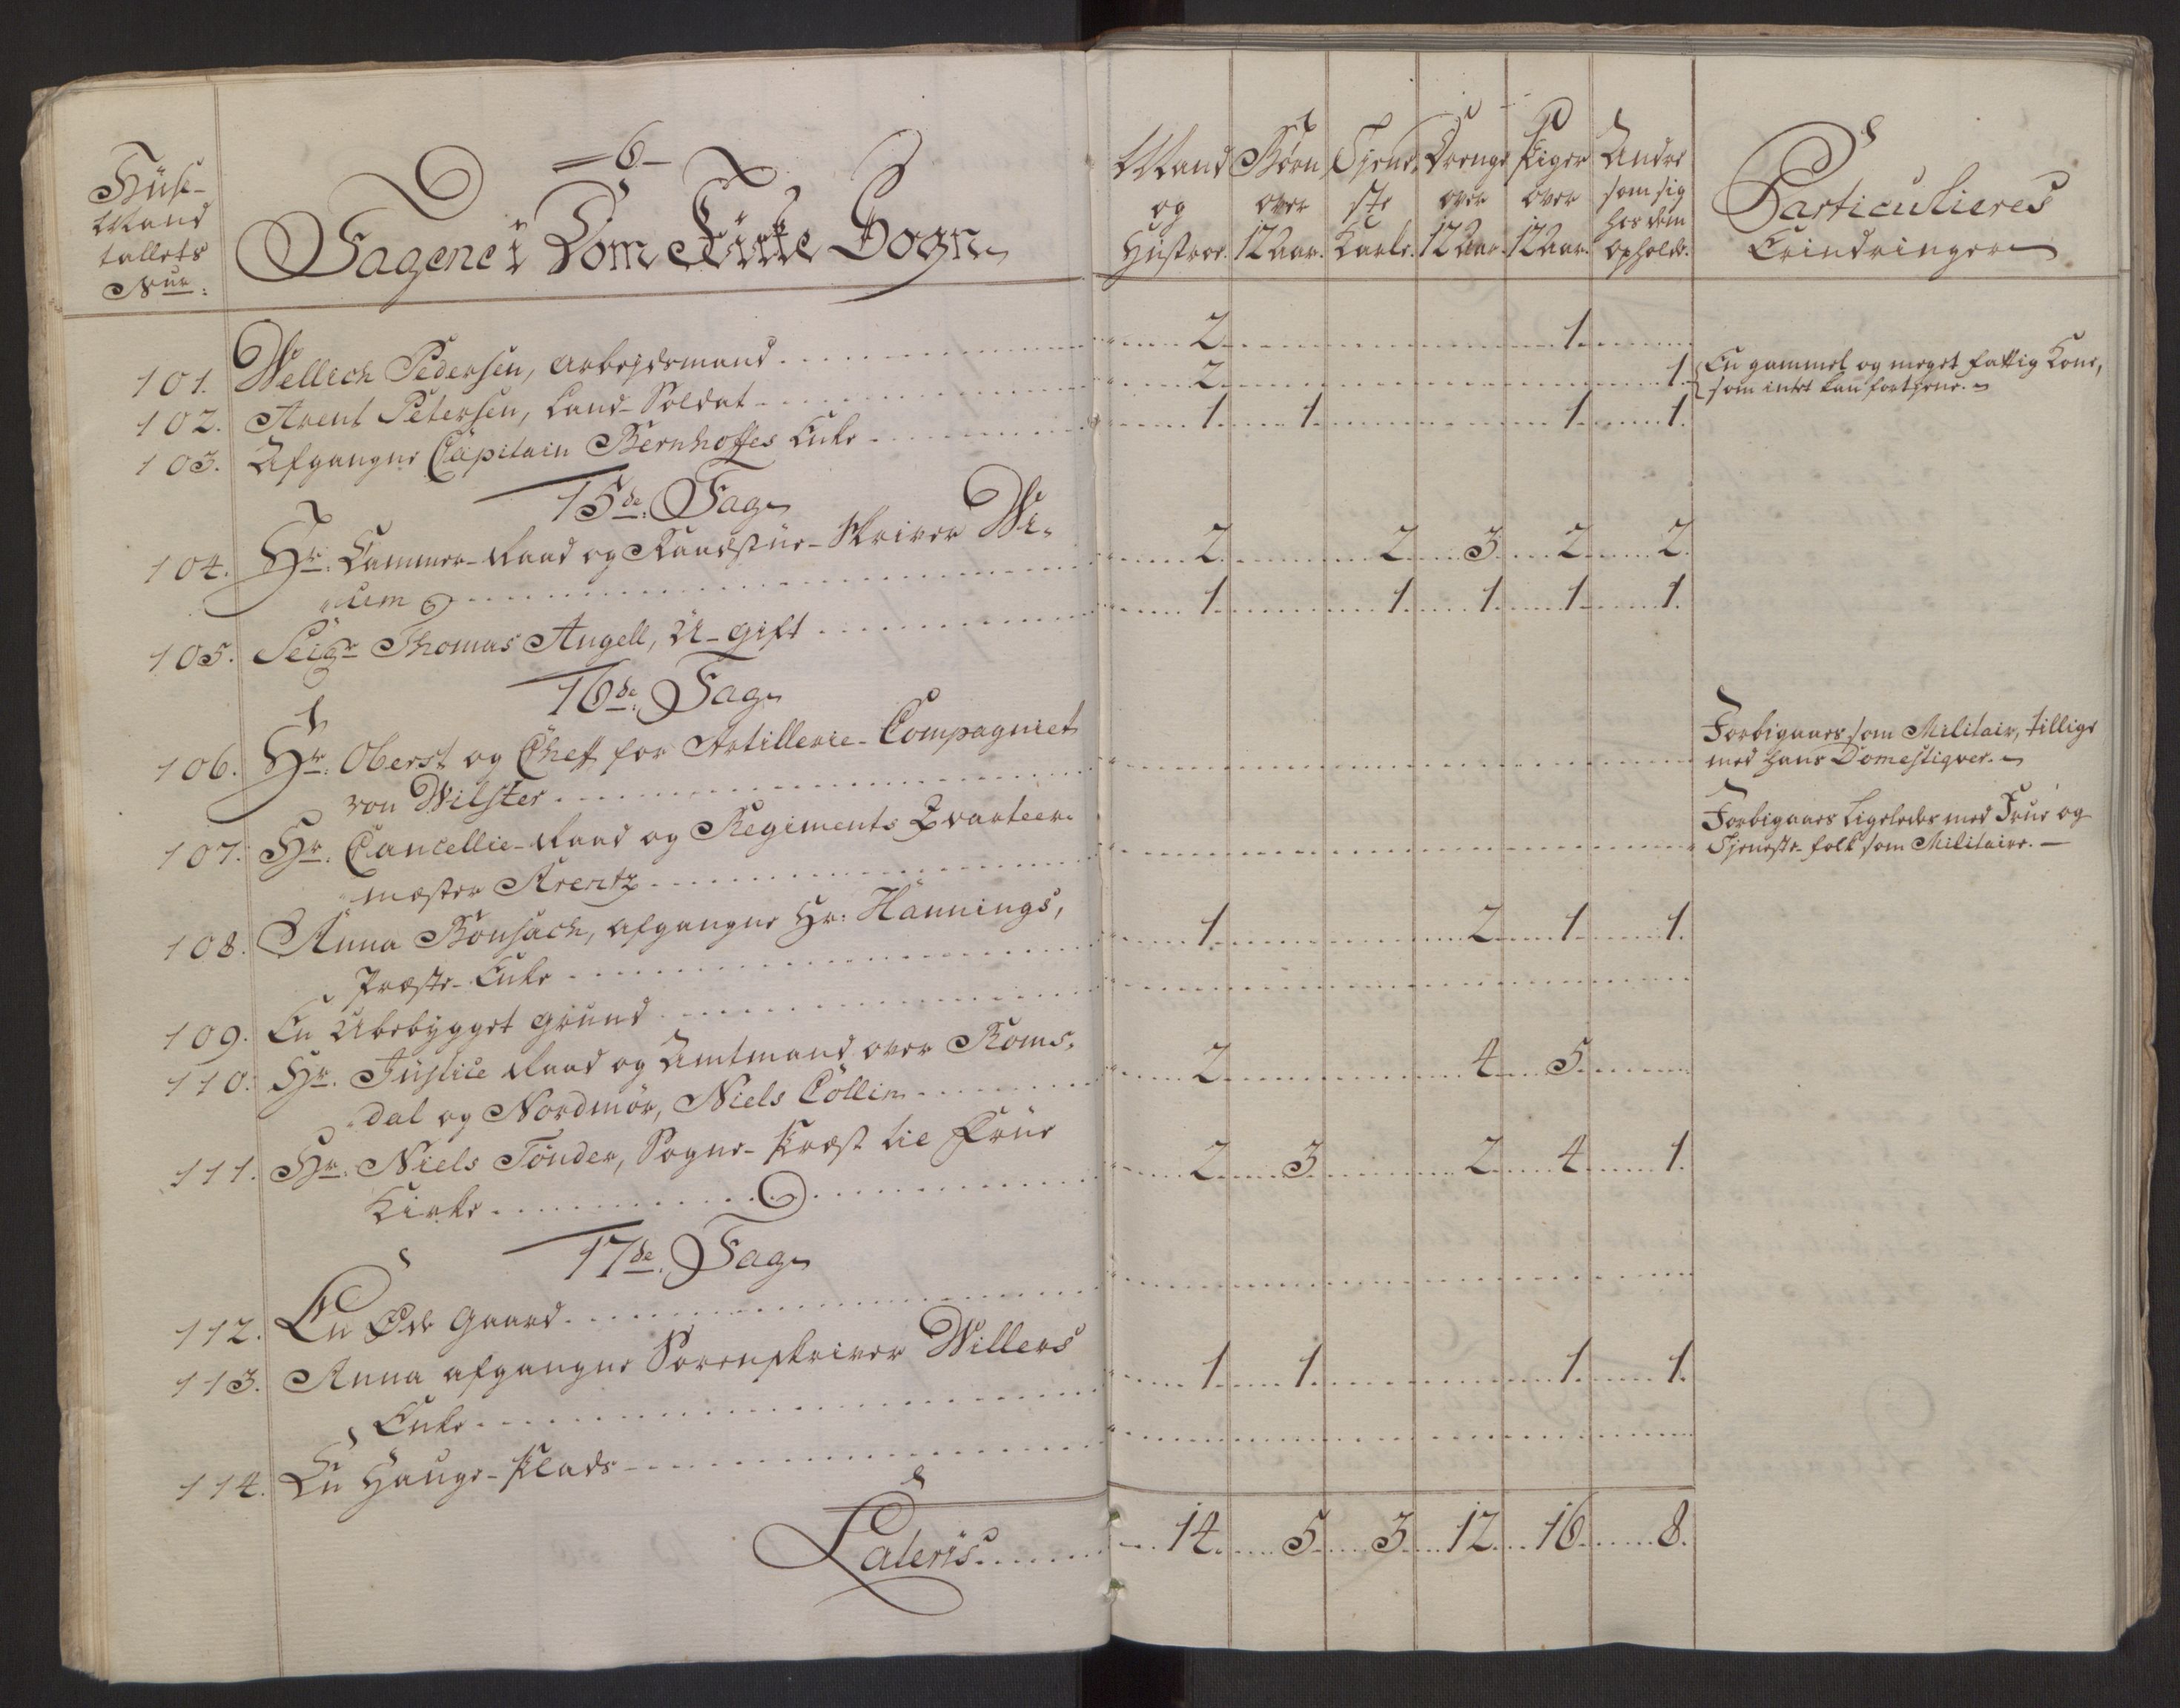 =6=
Huus-
Mand
tallets
Num:
Tagene i Dom Kirke Sogn
Mand
og
Hustroe.
Børn
over
12 Aar.
Tjene-
ste
Karle.
Drenge
over
12 Aar.
Piger
over
12 Aar.
Andre
som sig
hos dem
opholde.
Particulieres
Erindringer
101. Wellich Pedersen, Arbejdsmand 2 1
102. Arent Petersen, Land-Soldat 2 1. En gammel og meget fattig Kone,
som intet kan fortjene.
103. Afgangne Capitain Bernhoftes Enke 1 1 1 1.
15de Tag
104. Hr: Cammer-Raad og Raadstue-Skriver We-
sem 2 2 3 2 2.
105. Seigr Thomas Angell, U-gift 1 1 1 1 1.
16de Tag
106. Hr: Oberst og Cheff for Artillerie-Compagniet
von Wilster Forbigaaes som Militair, tillige
med hans Domestiqver.
107. Hr: Cancellie-Raad og Regiments Qvarteer-
mester Arentz Forbigaaes ligeledes med Frue og
Tjeneste-folk som Militaire.
108. Anna Bonsach, afgangne Hr: Hannings,
Præste-Enke 1 2 1 1.
109. En Ubebygget Grund
110. Hr. Justice Raad og Amtmand over Roms-
dal og Nordmør, Niels Collin 2 4 5
111. Hr: Niels Tönder, Sogne-Præst til Frue
Kirke 2 3 2 4 1.
17de Tag
112. En Øde Gaard
113. Anna afgangne Sorenskriver Willers
Enke 1 1 1 1.
114. En Hauge-Plads
Lateris 14. 5 3 12 16 8.